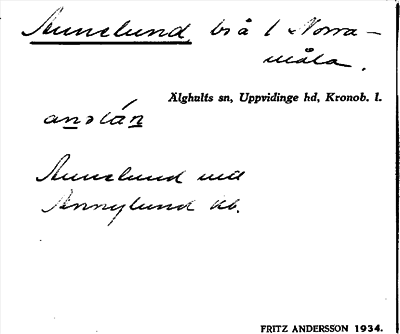 Annelund, bs å 1 Norra-
måla.
Älghults sn, Uppvidinge hd, Kronob. l.
anəlán
Annelund
Annylund kb.
FRITZ ANDERSSON 1934.